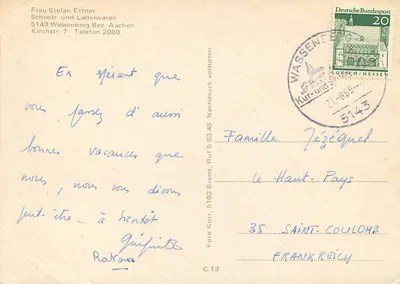 Frau Stefan Ettner
Schreib- und Lederwaren
5143 Wassenberg Bez. Aachen
Kirchstr. 7 Telefon 2080
En espérant que
vous passez d'aussi
bonnes vacances que
nous, nous vous disons
peut-être - à bientôt
Foto Kurr, 5103 Brand, Ruf 5 03 45 Nachdruck verboten
C 13
Deutsche Bundespost
20
LORSCH/HESSEN
WASSENBERG
Kur- und
5143
Famille Jézéquel
Le Haut-Pays
35 SAINT-COULOMB
FRANKREICH